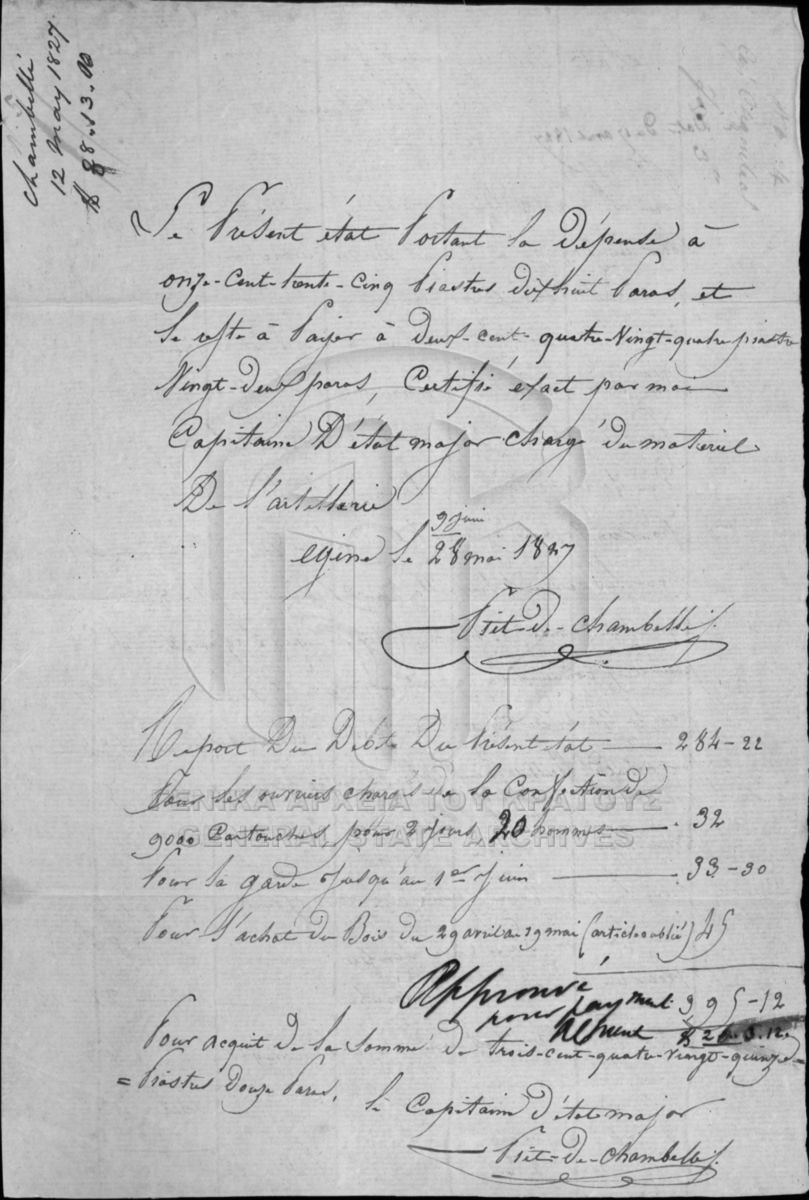 Chambelle
12 may 1827
Le Présent état Portant la dépense à
onze-Cent-trente-Cinq Piastres dixhuit Paras, et
le reste à Payer à deux-cent-quatre-Vingt-quatre piastre
Vingt-deux paras, Certifié exact par moi
Capitaine D'état major chargé du materiel
De l'artillerie
egine le 9 juin
28 mai 1827
Piet-de-chambelle
Report Du Debte Du Présent état — 284-22
Pour les ouvriers chargés de la Confection de
ΓΕΝΙΚΑ ΑΡΧΕΙΑ ΤΟΥ ΚΡΑΤΟΥΣ
9000 Cartouches pour 2 jours 20 hommes — 32
GENERAL STATE ARCHIVES
Pour la garde jusqu'au 1er juin — 33-30
Pour l'achat du Bois du 29 avril au 19 mai (article oublié) 45
Approuvé
pour payment 395-12
Pour acquit de la Somme de trois-cent-quatre-Vingt-quinze
= Piastres Douze Paras.
le Capitaine d'état major
Piet-de-chambelle